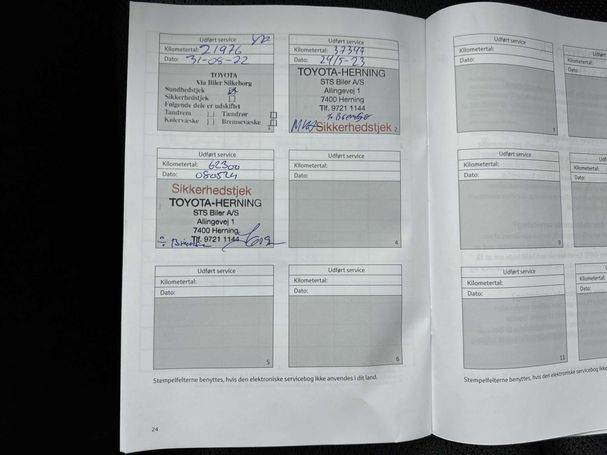 Udført service
Kilometertal: 21976
Dato: 31-08-22
TOYOTA
Via Biler Silkeborg
Sundhedstjek
Sikkerhedstjek
Følgende dele er udskiftet
Tandrem
Tændrør
Kølervæske
Bremsevæske
1
Udført service
Kilometertal: 37399
Dato: 29/5-23
TOYOTA-HERNING
STS Biler A/S
Allingevej 1
7400 Herning
Tlf. 9721 1144
Sikkerhedstjek
2
Udført service
Kilometertal: 62300
Dato: 080524
Sikkerhedstjek
TOYOTA-HERNING
STS Biler A/S
Allingevej 1
7400 Herning
Tlf. 9721 1144
Udført service
Kilometertal:
Dato:
4
Udført service
Kilometertal:
Dato:
5
Udført service
Kilometertal:
Dato:
6
Stempelfelterne benyttes, hvis den elektroniske servicebog ikke anvendes i dit land.
24
Udført service
Kilometertal:
Dato:
7
Udført service
Kilometertal:
Dato:
9
Udført service
Kilometertal:
Dato:
11
Stempelfelterne benyttes, hvis den elektroniske servicebog ikke anve